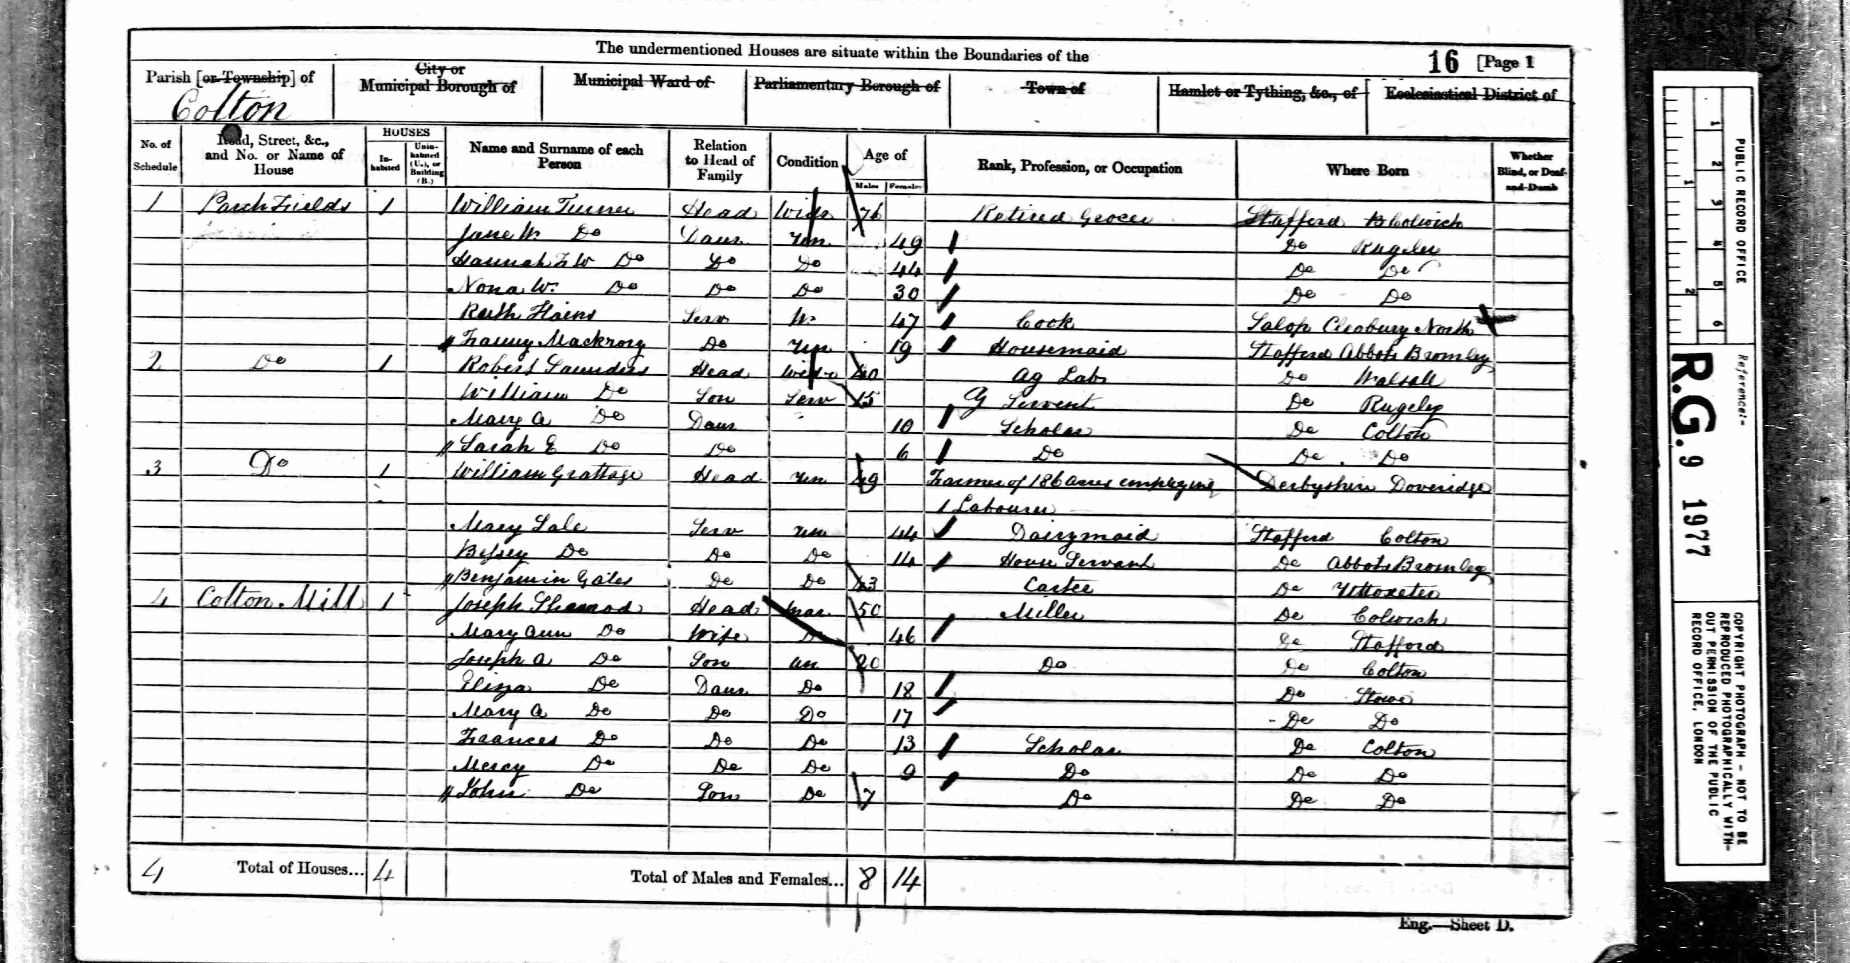 The undermentioned Houses are situate within the Boundaries of the
16 [Page 1
Parish [or Township] of
Colton
City or
Municipal Borough of
Municipal Ward of
Parliamentary Borough of
Town of
Hamlet or Tything, &c., of
Ecclesiastical District of
No. of
Schedule
Road, Street, &c.,
and No. or Name of
House
HOUSES
In-
habited
Unin-
habited
(U.), or
Building
(B.)
Name and Surname of each
Person
Relation
to Head of
Family
Condition
Age of
Males Females
Rank, Profession, or Occupation
Where Born
Whether
Blind, or Deaf-
and-Dumb
1 Fields 1 William Turner Head 76 Retired Grocer Stafford
Jane W. Do Daur Un 49 Do Rugeley
Hannah W Do Do Do 44 Do Do
Nona W. Do Do Do 30 Do Do
Ruth Hains Serv W. 47 Cook Salop Cleobury North
Fanny Serv Do Un 19 Housemaid Stafford Abbots Bromley
2 Do 1 Robert Saunders Head 40 Ag Lab Do Walsall
William Do Son Serv 15 Servent Do Rugeley
Mary A Do Daur 10 Scholar Do Colton
Sarah E Do Do 6 Do Do Do
3 Do 1 William Grattage Head Un 49 Farmer of 186 Acres employing Derbyshire Doveridge
1 Labourer
Mary Sale Serv Un 44 Dairymaid Stafford Colton
Bessey Do Do Do 14 House Servant Do Abbots Bromley
Benjamin Gates Do Do Carter Do Uttoxeter
4 Colton Mill 1 Joseph Head Mar 50 Miller Do Colwich
Mary Ann Do Wife Do 46 Do Stafford
Joseph A Do Son Un 20 Do Do Colton
Eliza Do Daur Do 18 Do Stowe
Mary A Do Do Do 17 Do Do
Frances Do Do Do 13 Scholar Do Colton
Mercy Do Do Do 9 Do Do Do
John Do Son Do 7 Do Do Do
4 Total of Houses... 4 Total of Males and Females... 8 14
Eng.—Sheet D.
PUBLIC RECORD OFFICE
1 2 3 4 5 6
1 2
Reference:-
R.G. 9 1977
COPYRIGHT PHOTOGRAPH - NOT TO BE
REPRODUCED PHOTOGRAPHICALLY WITH-
OUT PERMISSION OF THE PUBLIC
RECORD OFFICE, LONDON